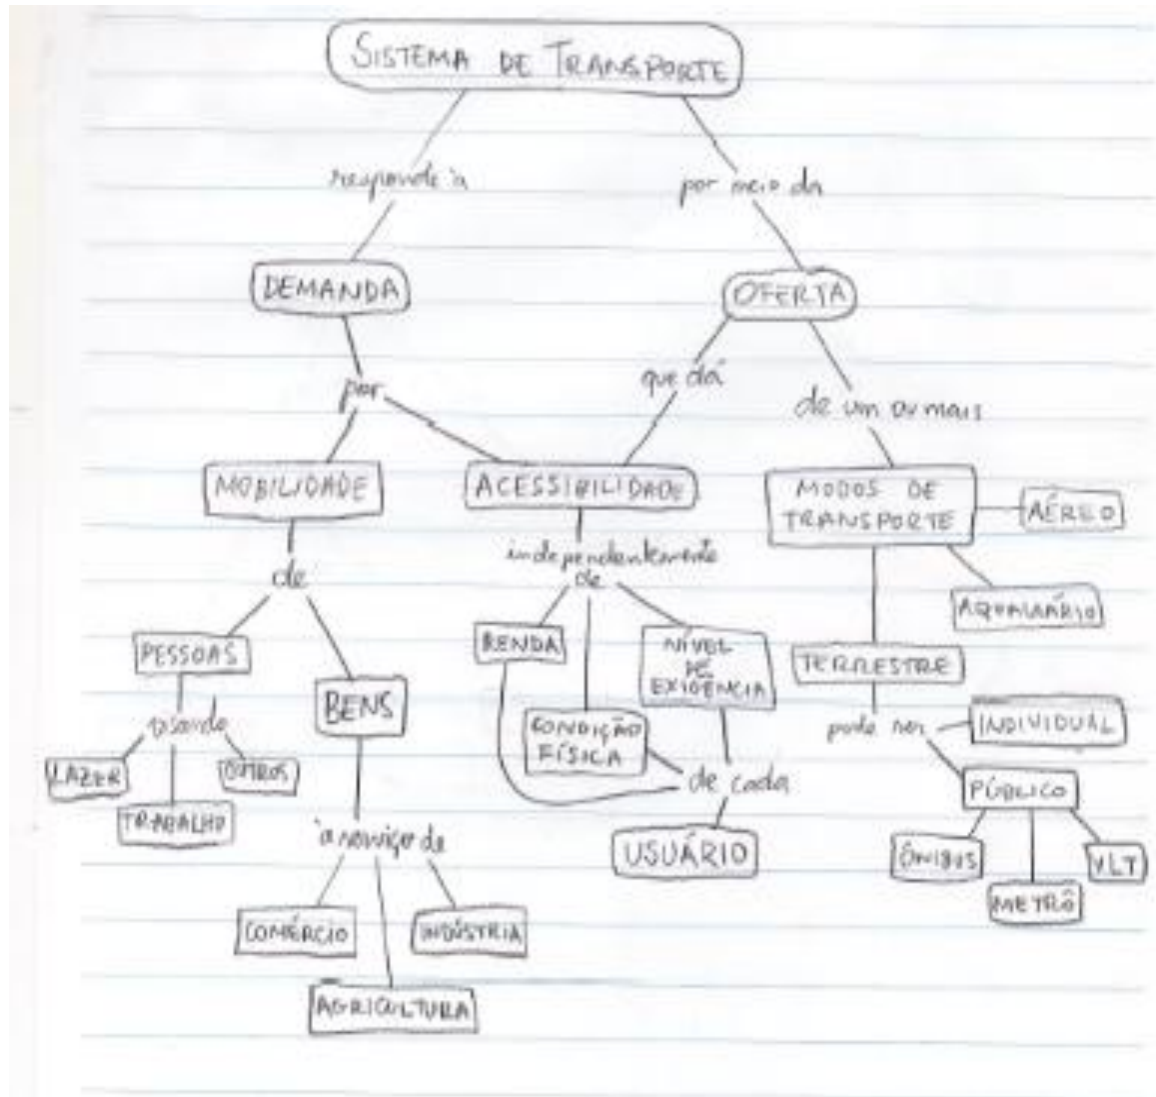 SISTEMA DE TRANSPORTE
responde à
por meio da
DEMANDA
OFERTA
por
que dá
de um ou mais
MOBILIDADE
ACESSIBILIDADE
MODOS DE
TRANSPORTE
AÉREO
de
independentemente
de
AQUAVIÁRIO
PESSOAS
RENDA
NÍVEL
DE
EXIGÊNCIA
TERRESTRE
BENS
visando
CONDIÇÃO
FÍSICA
pode ser
INDIVIDUAL
LAZER
OUTROS
TRABALHO
de cada
PÚBLICO
à serviço de
USUÁRIO
ÔNIBUS
VLT
METRÔ
COMÉRCIO
INDÚSTRIA
AGRICULTURA